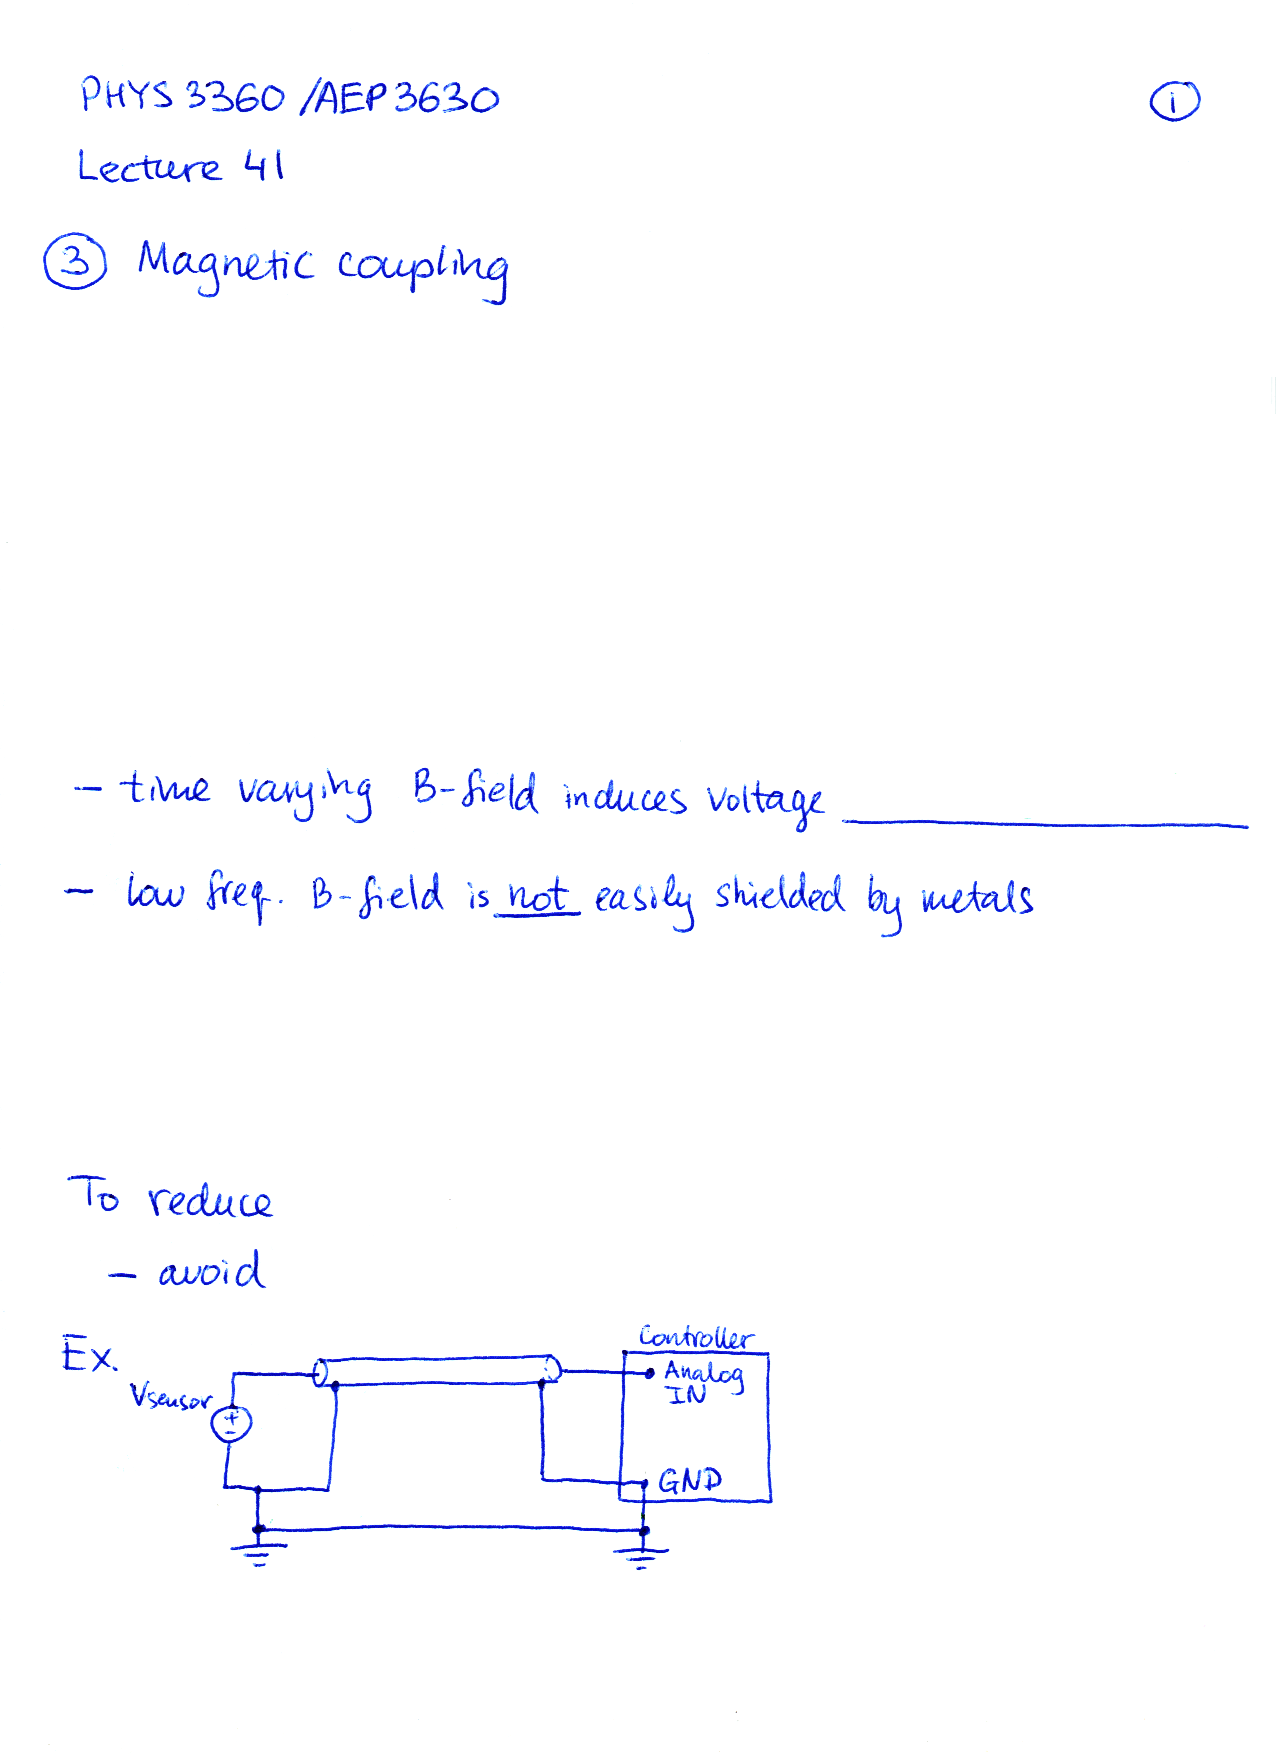 PHYS 3360 /AEP 3630
1
Lecture 41
3 Magnetic coupling
- time varying B-field induces voltage
- low freq. B-field is not easily shielded by metals
To reduce
- avoid
Ex.
Controller
Vsensor
+
-
Analog
IN
GND